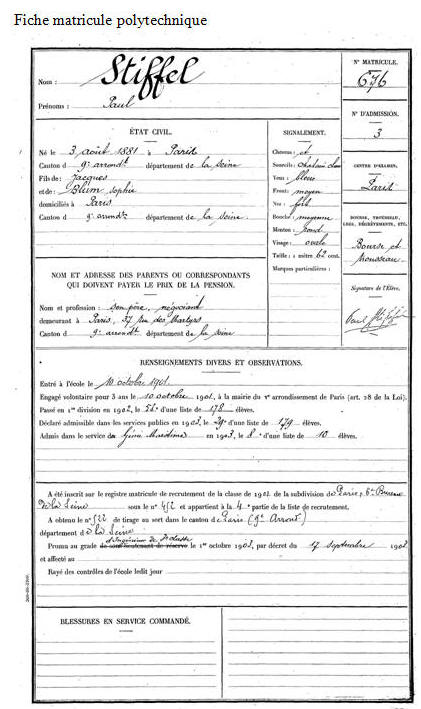 Fiche matricule polytechnique
Nom : Stiffel
Prénoms : Paul
N° MATRICULE.
676
N° D'ADMISSION.
3
CENTRE D'EXAMEN.
Paris
BOURSE, TROUSSEAU,
LEGS, DÉGRÈVEMENTS, ETC.
Bourse et
trousseau
Signature de l'Élève.
Paul Stiffel
ÉTAT CIVIL.
Né le 3 août 1881 à Paris
Canton d 9e arrondt département de la Seine
Fils de : Jacques
et de : Blum Sophie
domiciliés à Paris
Canton d 9e arrondt département de la Seine.
SIGNALEMENT.
Cheveux : et
Sourcils : châtain clair
Yeux : bleus
Front : moyen
Nez : fort
Bouche : moyenne
Menton : rond
Visage : ovale
Taille : 1 mètre 62 cent.
Marques particulières :
NOM ET ADRESSE DES PARENTS OU CORRESPONDANTS
QUI DOIVENT PAYER LE PRIX DE LA PENSION.
Nom et profession : son père, négociant
demeurant à Paris, 57 rue des Martyrs
Canton d 9e arrondt département de la Seine
RENSEIGNEMENTS DIVERS ET OBSERVATIONS.
Entré à l'école le 10 octobre 1901.
Engagé volontaire pour 3 ans le 10 octobre 1901, à la mairie du Ve arrondissement de Paris (art. 28 de la Loi).
Passé en 1re division en 1902, le 56e d'une liste de 178 élèves.
Déclaré admissible dans les services publics en 1903, le 29e d'une liste de 179 élèves.
Admis dans le service du Génie Maritime en 1903, le 8e d'une liste de 10 élèves.
A été inscrit sur le registre matricule de recrutement de la classe de 1901 de la subdivision de Paris, 6e Bureau
de la Seine sous le n° 452 et appartient à la 4e partie de la liste de recrutement.
A obtenu le n° 522 de tirage au sort dans le canton de Paris (9e Arront)
département d e la Seine
d'Ingénieur de 3e classe
Promu au grade de sous-lieutenant de réserve le 1er octobre 1903, par décret du 17 septembre 1903
et affecté au
Rayé des contrôles de l'école ledit jour
BLESSURES EN SERVICE COMMANDÉ.